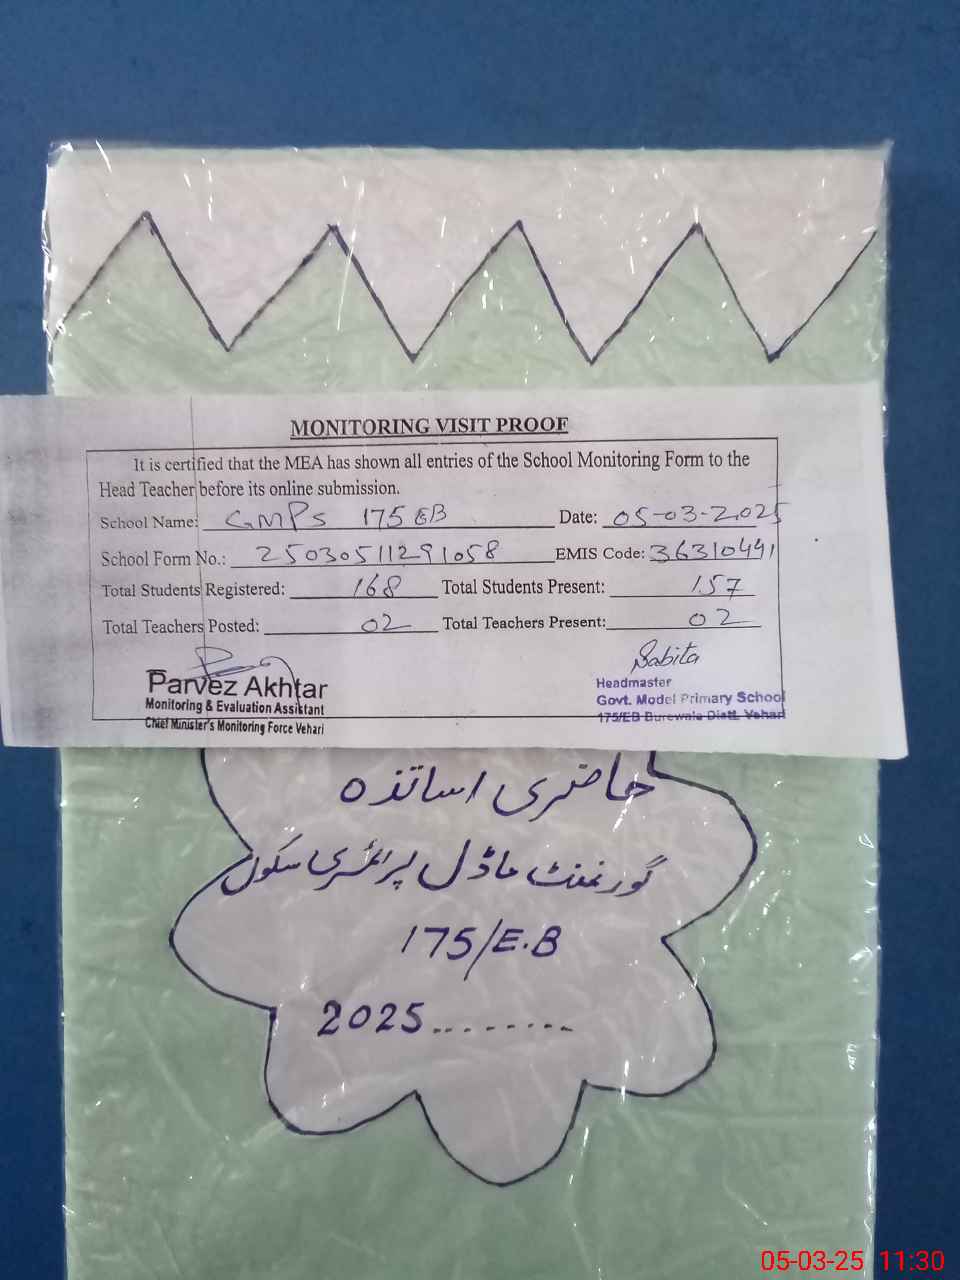 MONITORING VISIT PROOF
It is certified that the MEA has shown all entries of the School Monitoring Form to the
Head Teacher before its online submission.
School Name: GMPS 175 EB Date: 05-03-2025
School Form No.: 25030511291058 EMIS Code: 36310441
Total Students Registered: 168 Total Students Present: 157
Total Teachers Posted: 02 Total Teachers Present: 02
Sabita
Parvez Akhtar
Monitoring & Evaluation Assistant
Chief Minister's Monitoring Force Vehari
Headmaster
Govt. Model Primary School
175/EB Burewala Distt. Vehari
حاضری اساتذہ
گورنمنٹ ماڈل پرائمری سکول
175/E.B
2025........
05-03-25 11:30